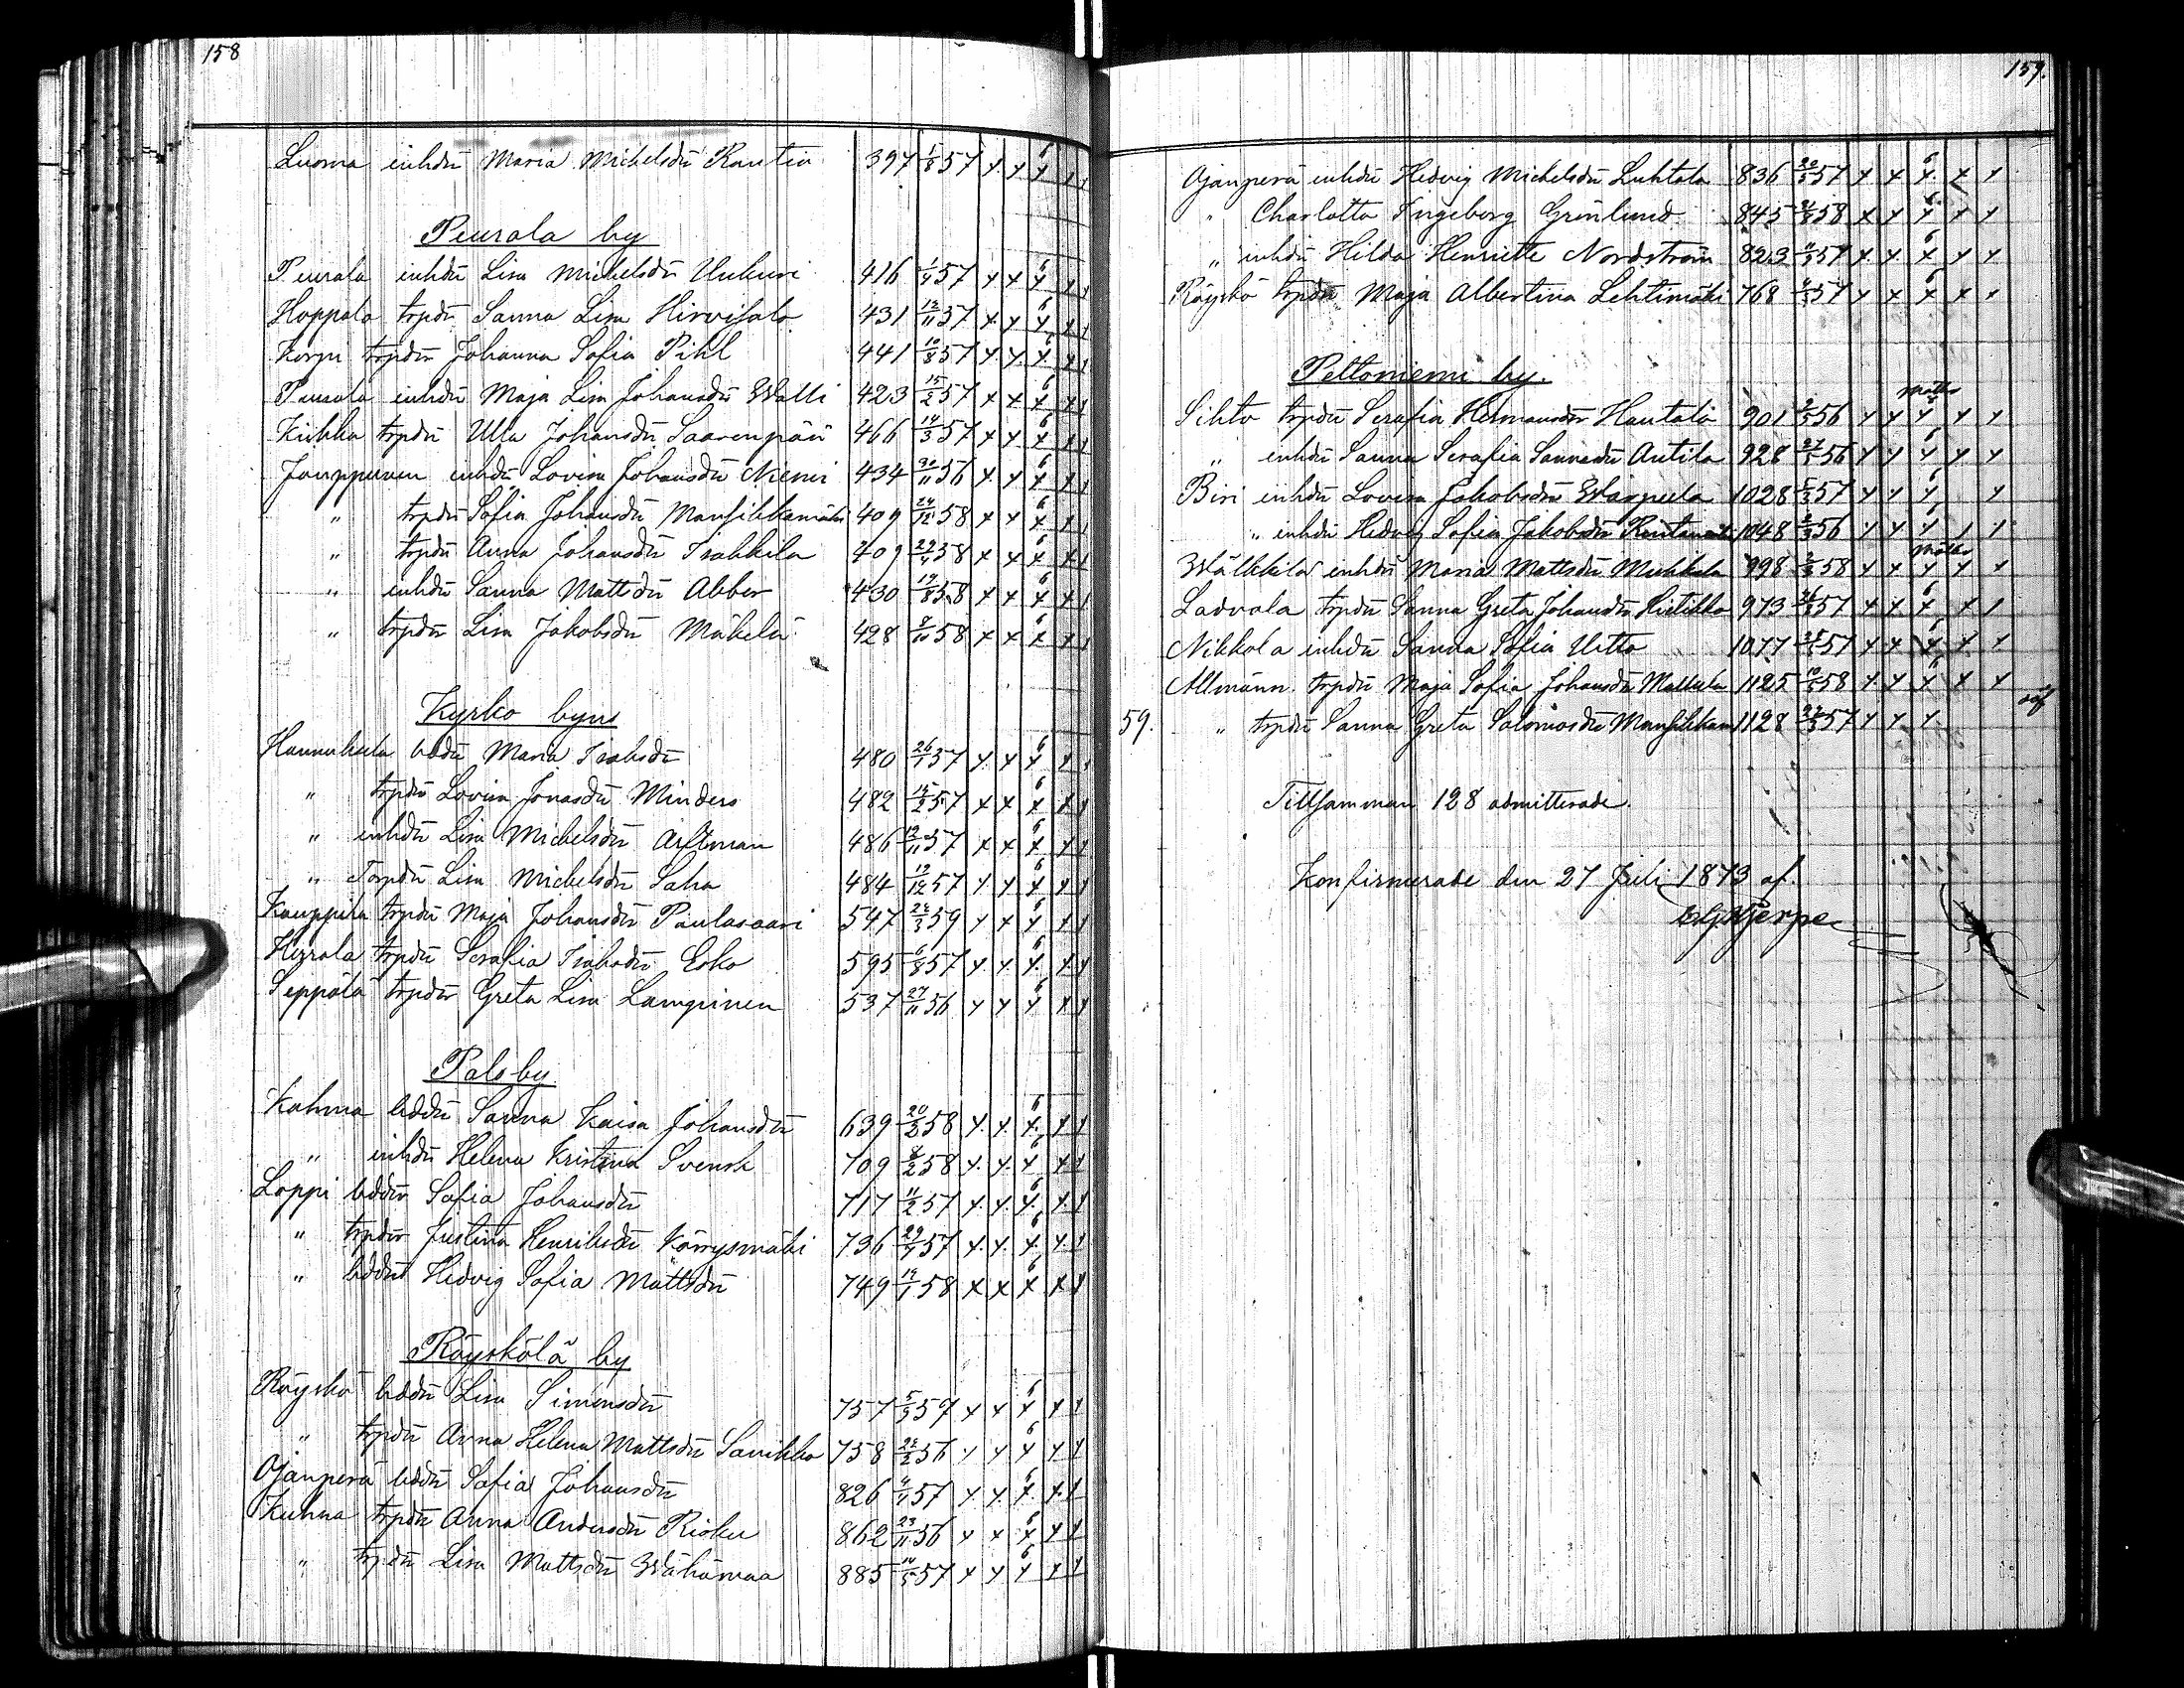 158
Luoma inhdr Maria Michelsdr Rautio 397 1/8 57 x x 6 x x x
Peurala by
Peurala inhdr Lisa Michelsdr Unkuri 416 1/4 57 x x 6 x x x
Hoppala trpdr Sanna Lisa Hirvisalo 431 12/11 57 x x 6 x x x
Korpi trpdr Johanna Sofia Pihl 441 10/8 57 x x 6 x x x
Peurala inhdr Maja Lisa Johansdr Walli 423 15/2 57 x x 6 x x x
Kiikka trpdr Ulla Johansdr Saarenpää 466 14/3 57 x x 6 x x x
Jouppunen inhdr Lovisa Johansdr Niemi 434 30/11 56 x x 6 x x x
" trpdr Sofia Johansdr Mansikkamäki 409 24/12 58 x x 6 x x x
" trpdr Anna Johansdr Isakkila 409 29/4 58 x x 6 x x x
" inhdr Sanna Mattsdr Abber 430 19/8 58 x x 6 x x x
" trpdr Lisa Jakobsdr Mäkelä 428 8/10 58 x x 6 x x x
Kyrko byn
Hannuksela bddr Maria Isaksdr 480 26/1 57 x x 6 x x
" trpdr Lovisa Jonasdr Minders 482 15/2 57 x x 6 x x x
" inhdr Lisa Michelsdr Ärltman 486 12/11 57 x x 6 x x x
" Torpdr Lisa Michelsdr Saha 484 19/12 57 x x 6 x x x
Kauppila trpdr Maja Johansdr Paulasaari 547 22/3 59 x x 6 x x x
Hirsala trpdr Serafia Isaksdr Esko 595 6/8 57 x x 6 x x x
Seppälä trpdr Greta Lisa Lampinen 537 27/11 56 x x 6 x x x
Palo by
Kahma bddr Sanna Kaisa Johansdr 639 20/2 58 x x 6 x x x
" inhdr Helena Kristina Svensk 709 8/2 58 x x 6 x x x
Loppi bddr Sofia Johansdr 717 11/2 57 x x 6 x x x
" trpdr Justina Henriksdr Körrysmäki 736 29/4 57 x x 6 x x x
" bddr Hedvig Sofia Mattsdr 749 19/1 58 x x 6 x x x
Röyskölä by
Röyskö bddr Lisa Simonsdr 757 5/9 57 x x 6 x x x
" trpdr Anna Helena Mattsdr Sarikko 758 22/2 56 x x 6 x x x
Ojanperä bddr Sofia Johansdr 826 4/4 57 x x 6 x x x
Kuhna trpdr Anna Andersdr Risku 862 23/11 56 x x 6 x x x
" trpdr Lisa Mattsdr Wähämaa 885 14/5 57 x x 6 x x x
159.
Ojanperä inhdr Hedvig Michelsdr Luhtala 836 20/5 57 x x 6 x x x
" Charlotta Ingeborg Grönlund 845 21/8 58 x x 6 x x x
" inhdr Hilda Henriette Nordström 823 11/9 57 x x 6 x x x
Röyskö trpdr Maja Albertina Lehtimäki 768 6/5 57 x x 6 x x x
Peltoniemi by.
Sihto trpdr Serafia Hermansdr Hautala 901 2/5 56 x x x x x
" inhdr Sanna Serafia Sannasdr Antila 928 27/5 56 x x 6 x x x
Biri inhdr Lovisa Jakobsdr Warpula 1028 5/3 57 x x 6 x x
" inhdr Hedvig Sofia Jakobsdr 1048 56 x x 6 x x x
Wälkkilä inhdr Maria Mattsdr Mukkala 998 2/8 58 x x x x x
Ladvala trpdr Sanna Greta Johansdr Hietikko 973 57 x x 6 x x x
Nikkola inhdr Sanna Sofia Uitto 1077 57 x x 6 x x x
Allmänn. trpdr Maja Sofia Johansdr Mattila 1125 10/5 58 x x 6 x x x
59. " trpdr Sanna Greta Salomosdr Mansikkam 1128 57 x x x
Tillsamman 128 admitterade.
Konfirmerade den 27 Juli 1873 af.